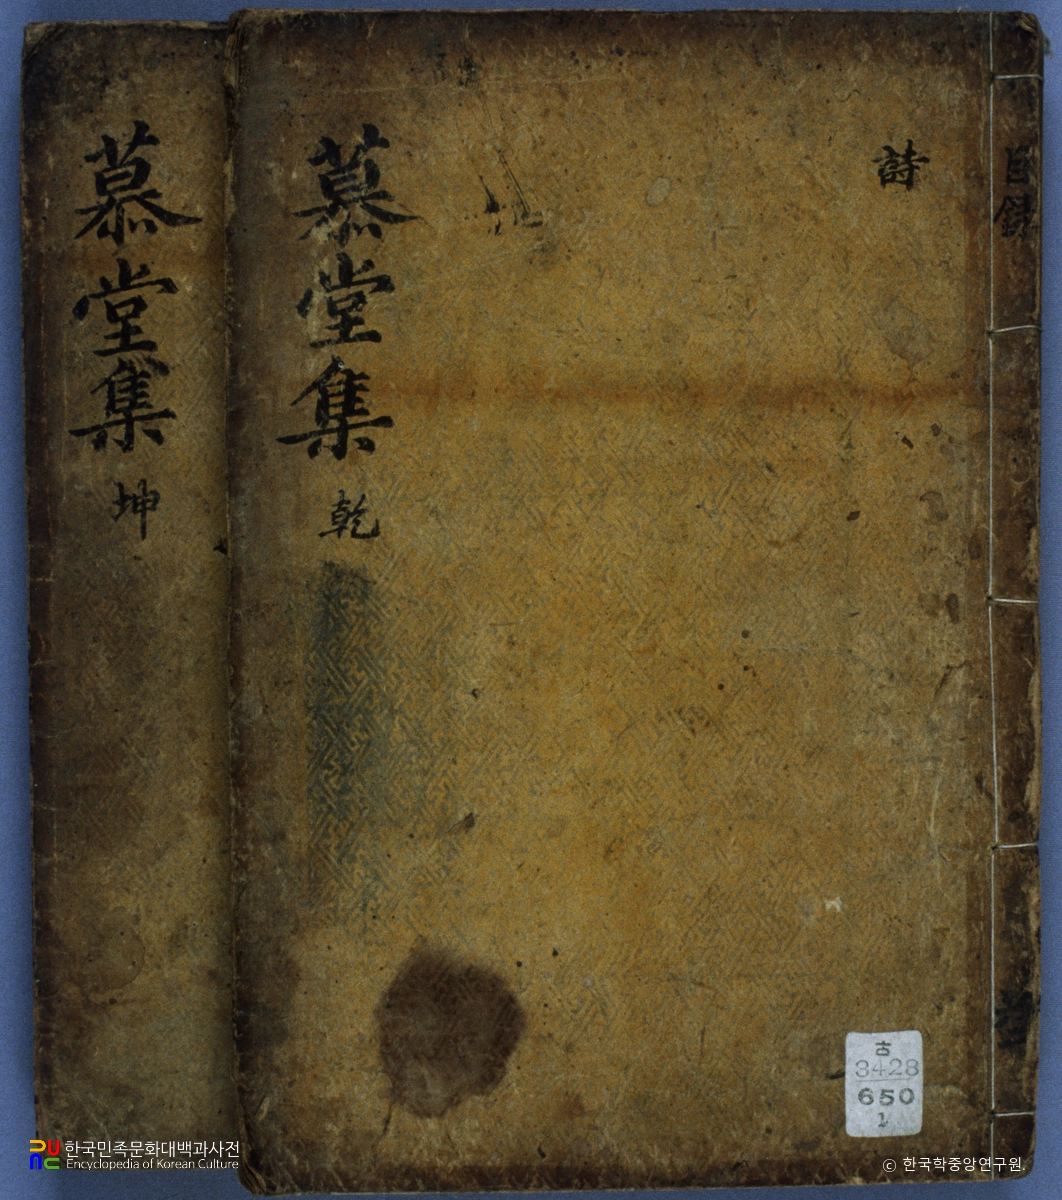 目錄
詩
慕堂集
乾
慕堂集
坤
古
3428
650
1
한국민족문화대백과사전
Encyclopedia of Korean Culture
© 한국학중앙연구원.